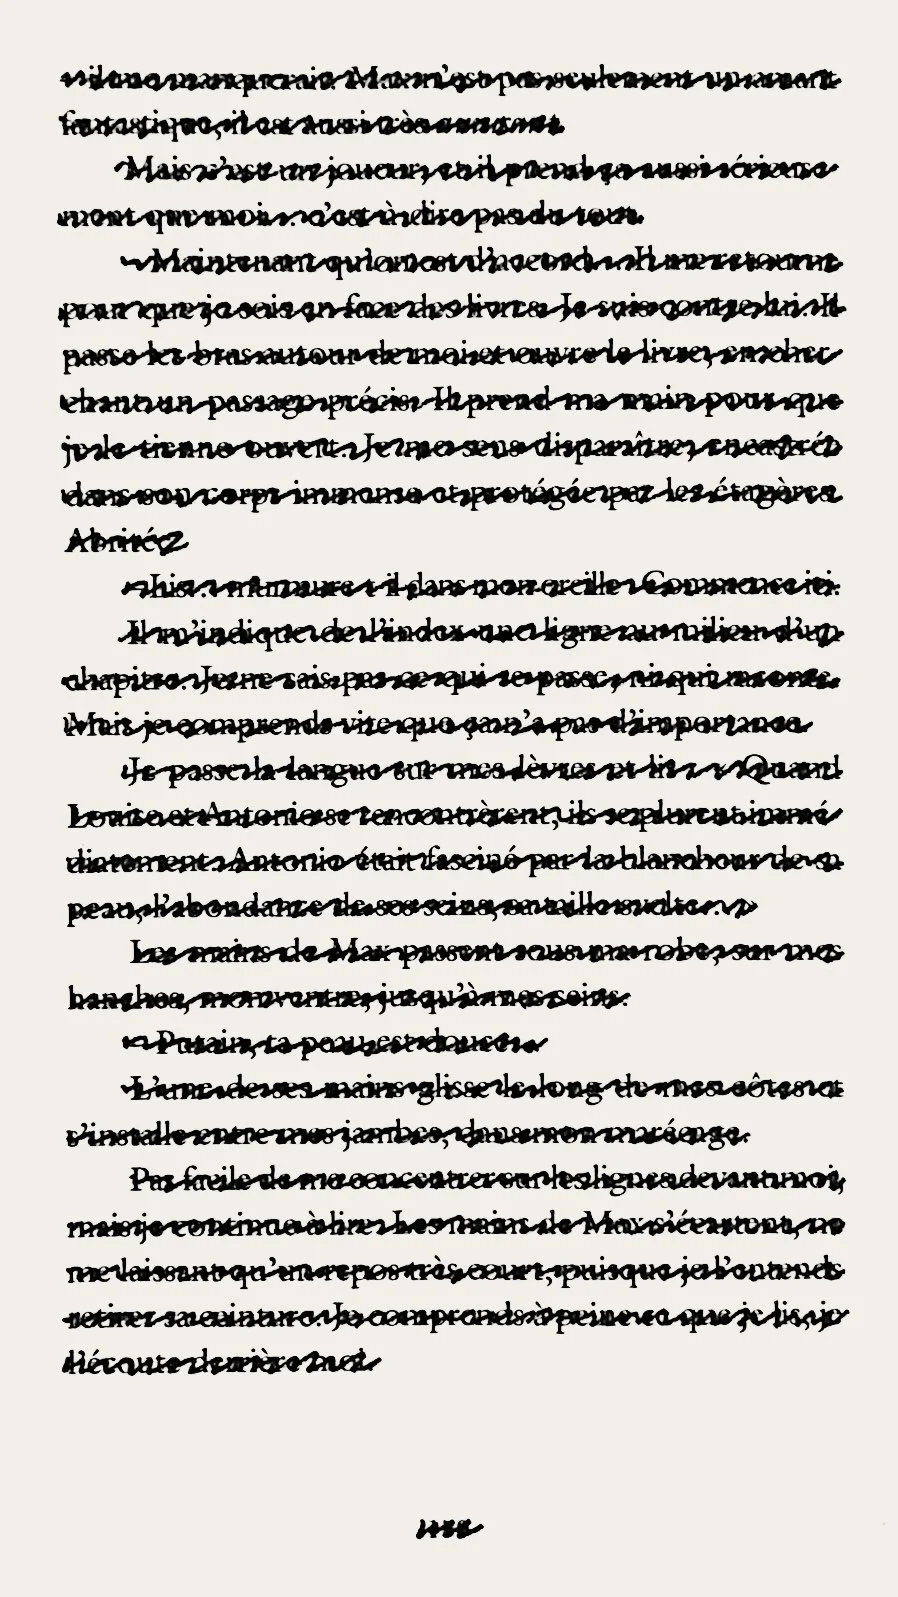 Max n'est pas seulement un amant
fantastique, il est aussi très
Mais c'est un joueur, et il prend ça aussi sérieuse-
ment que moi... c'est-à-dire pas du tout.
— Maintenant qu'on est d'accord... Il me retourne
pour que je sois en face des livres. Je suis contre lui. Il
passe les bras autour de moi et ouvre le livre, en cher-
chant un passage précis. Il prend ma main pour que
je le tienne ouvert. Je me sens disparaître,
dans son corps immense et protégée par les étagères.
Abritée.
— Lis... murmure-t-il dans mon oreille. Commence ici.
Il m'indique de l'index une ligne au milieu d'un
chapitre. Je ne sais pas ce qui se passe, ni qui raconte.
Mais je comprends vite que ça n'a pas d'importance.
Je passe la langue sur mes lèvres et lis : « Quand
Louise et Antonio se rencontrèrent, ils se plurent immé-
diatement. Antonio était fasciné par la blancheur de sa
peau, l'abondance de ses seins, sa taille svelte... »
Les mains de Max passent sous ma robe, sur mes
hanches, mon ventre, jusqu'à mes seins.
— Putain, ta peau est douce...
L'une de ses mains glisse le long de mes côtes et
s'installe entre mes jambes, dans mon
Pas facile de me concentrer sur les lignes devant moi,
mais je continue à lire. Les mains de Max s'écartent, ne
me laissant qu'un repos très court, puisque je l'entends
retirer sa ceinture. Je comprends à peine ce que je lis, je
l'écoute derrière moi.